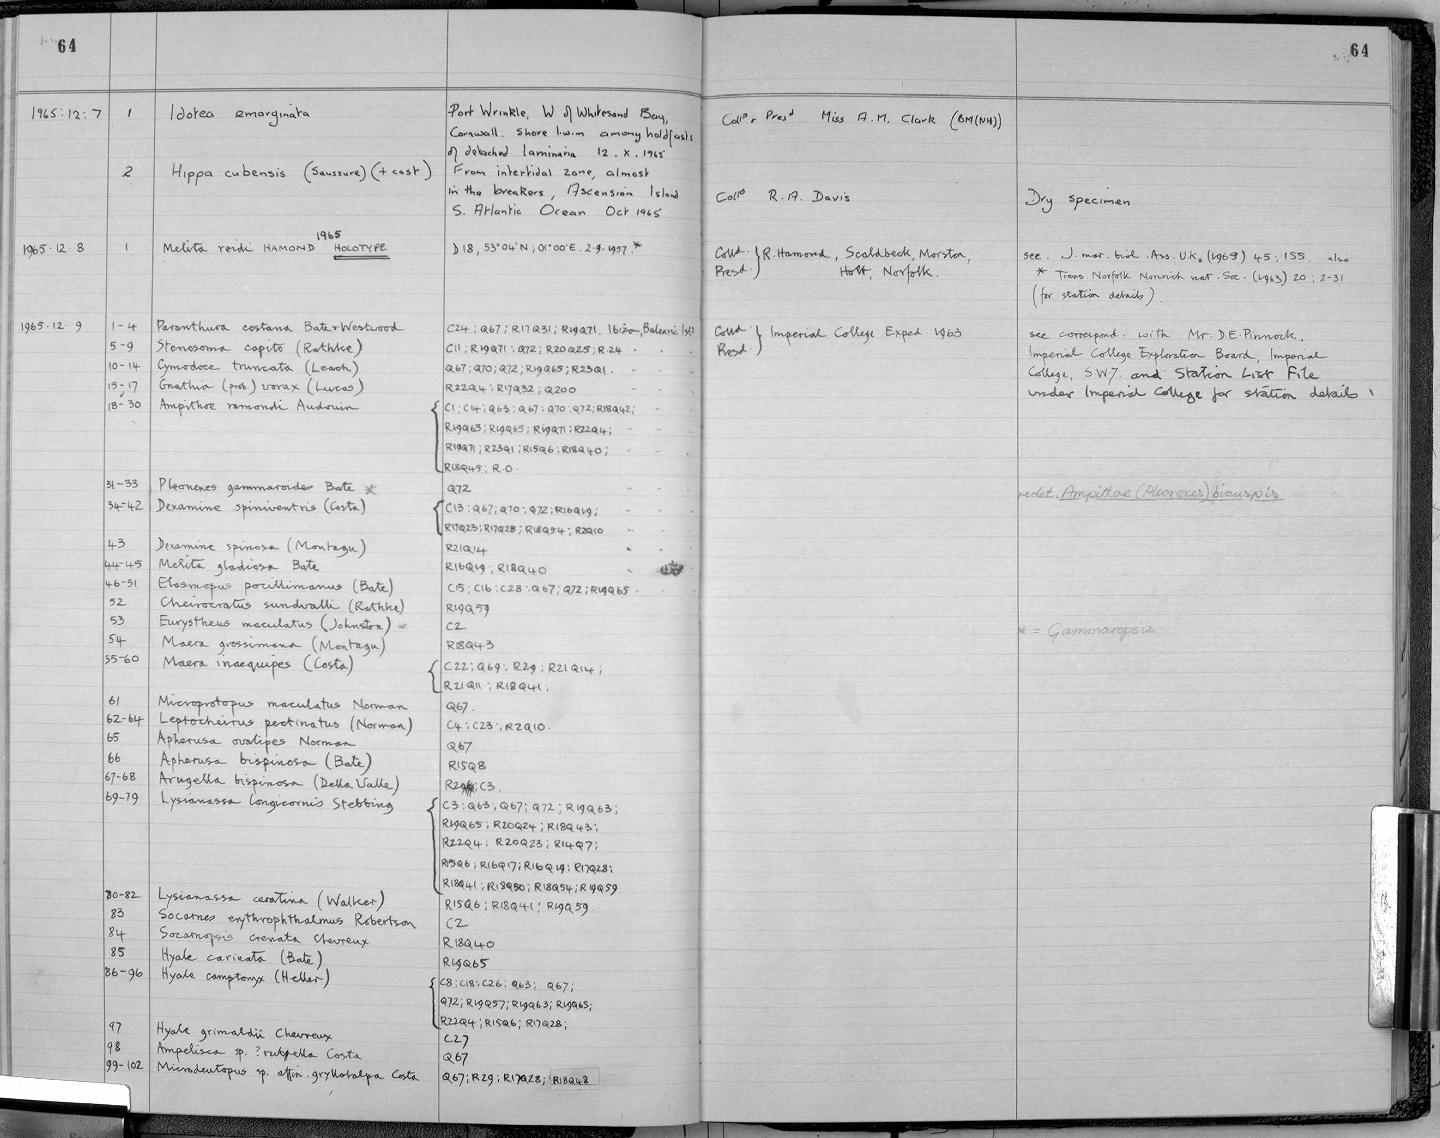 64
64
1965.12.7 1 Idotea emarginata Port Wrinkle, W of Whitesand Bay, Coll^d & Pres^d Miss A.M. Clark (BM(NH))
Cornwall. Shore 1w.m among holdfasts
of detached laminaria 12.X.1965
2 Hippa cubensis (Saussure) (+ cast) From intertidal zone, almost
in the breakers, Ascension Island Coll^d R.A. Davis Dry specimen
S. Atlantic Ocean Oct 1965
1965
1965.12.8 1 Melita reidi HAMOND HOLOTYPE D18, 53°04'N; 01°00'E. 2.9.1957.* Colld Presd } R. Hamond, Scaldbeck, Morston, see. J. mar. biol. Ass. U.K. (1965) 45; 155. also
Holt, Norfolk. * Trans. Norfolk Norwich nat. Soc. (1963) 20; 2-31
(for station details).
1965.12.9 1-4 Paranthura costana Bate & Westwood C24; Q67; R17Q31; R19Q71. Ibiza, Balearic Isls Colld Presd } Imperial College Exped 1963 see correspond. with Mr. D.E. Pinnock,
5-9 Stenosoma capito (Rathke) C11; R19Q71; Q72; R20Q25; R.24 Imperial College Exploration Board, Imperial
10-14 Cymodoce truncata (Leach) Q67; Q70; Q72; R19Q65; R23Q1. College, S.W.7. and Station List File
15-17 Gnathia (prob.) vorax (Lucas) R22Q4; R17Q32; Q200 under Imperial College for station details
18-30 Ampithoe ramondi Audouin C1; C14; Q63; Q67; Q70; Q72; R18Q42;
R19Q63; R19Q65; R19Q71; R22Q4;
R19Q71; R23Q1; R15Q6; R18Q40;
R18Q45; R.0.
31-33 Pleonexes gammaroides Bate * Q72 redet. Ampithoe (Pleonexes) bicuspis
34-42 Dexamine spiniventris (Costa) C13; Q67; Q70; Q72; R16Q19;
R17Q23; R17Q28; R18Q54; R2Q10
43 Dexamine spinosa (Montagu) R21Q14
44-45 Melita gladiosa Bate R16Q19; R18Q40
46-51 Elasmopus pocillimanus (Bate) C15; C16; C28; Q67; Q72; R19Q65
52 Cheirocratus sundvalli (Rathke) R19Q59
53 Eurystheus maculatus (Johnston) * C2 * = Gammaropsis
54 Maera grossimana (Montagu) R18Q43
55-60 Maera inaequipes (Costa) C22; Q69; R29; R21Q14;
R21Q11; R18Q41;
61 Microprotopus maculatus Norman Q67.
62-64 Leptocheirus pectinatus (Norman) C4; C23; R2Q10.
65 Apherusa ovalipes Norman Q67
66 Apherusa bispinosa (Bate) R15Q8
67-68 Arugella bispinosa (Della Valle) R29; C3.
69-79 Lysianassa longicornis Stebbing C3; Q63; Q67; Q72; R19Q63;
R19Q65; R20Q24; R18Q43;
R22Q4; R20Q23; R14Q7;
R15Q6; R16Q17; R16Q19; R17Q28;
R18Q41; R18Q50; R18Q54; R19Q59
80-82 Lysianassa ceratina (Walker) R15Q6; R18Q41; R19Q59
83 Socarnes erythrophthalmus Robertson C2
84 Socarnopsis crenata Chevreux R18Q40
85 Hyale carinata (Bate) R19Q65
86-96 Hyale camptonyx (Heller) C8; C18; C26; Q63; Q67;
Q72; R19Q57; R19Q63; R19Q65;
R22Q4; R15Q6; R17Q28;
97 Hyale grimaldii Chevreux C27
98 Ampelisca sp. ? rubella Costa Q67
99-102 Microdeutopus sp. affin. gryllotalpa Costa Q67; R29; R17Q28; R18Q48